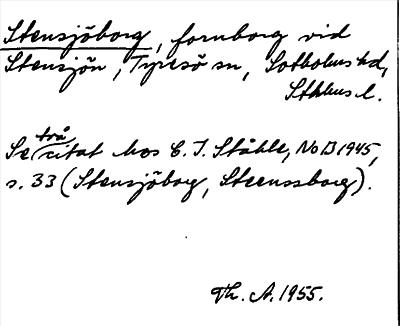 Stensjöborg, fornborg vid
Stensjön, Tyresö sn, Sotholms hd,
Sthlms l.
Se två citat hos C. I. Ståhle, NoB 1945,
s. 33 (Stensjöborg, Steenssborg).
Th. A. 1955.